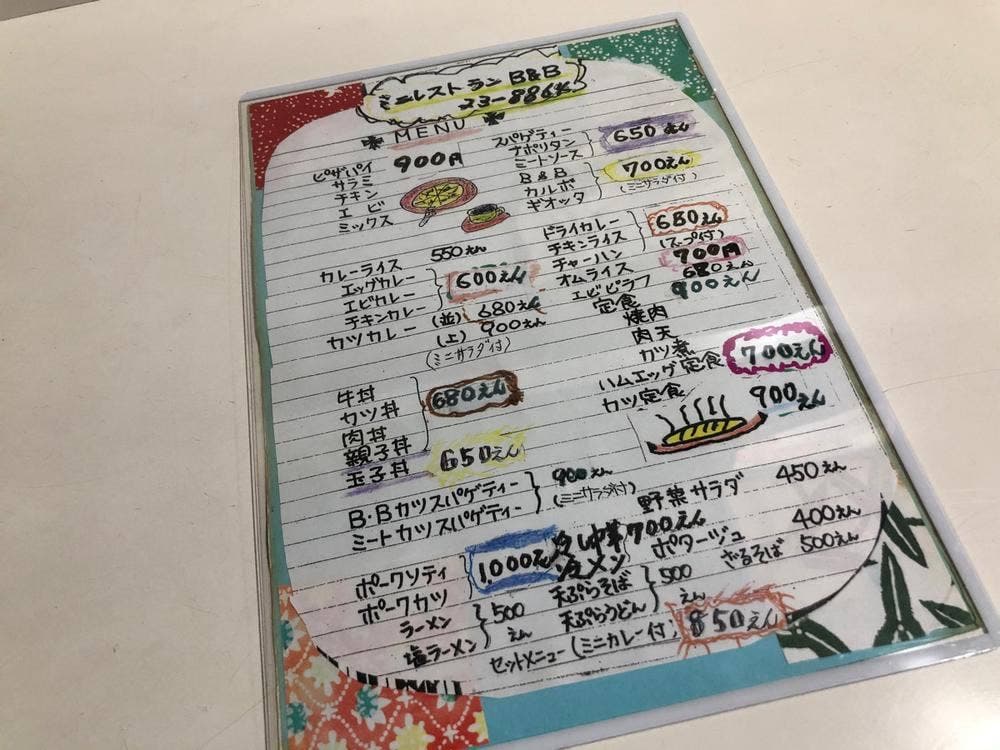 ミニレストラン B&B
23-8864
MENU
ピザパイ 900円
サラミ
チキン
エビ
ミックス
スパゲティー
ナポリタン
ミートソース
650えん
B&B
カルボ
ギオッタ
700えん
(ミニサラダ付)
カレーライス 550えん
エッグカレー
エビカレー
チキンカレー
600えん
カツカレー (並) 680えん
(上) 900えん
(ミニサラダ付)
ドライカレー
チキンライス
チャーハン
680えん
(スープ付)
オムライス 700円
エビピラフ 680えん
定食 900えん
焼肉
肉天
カツ煮
ハムエッグ定食
700えん
カツ定食 900えん
牛丼
カツ丼
肉丼
親子丼
680えん
玉子丼 650えん
B・Bカツスパゲティー
ミートカツスパゲティー
900えん
(ミニサラダ付)
野菜サラダ 450えん
ポタージュ 400えん
ざるそば 500えん
ポークソティ
ポークカツ
1,000えん
冷し中華 700えん
冷メン
ラーメン
塩ラーメン
500えん
天ぷらそば
天ぷらうどん
500えん
セットメニュー (ミニカレー付) 850えん